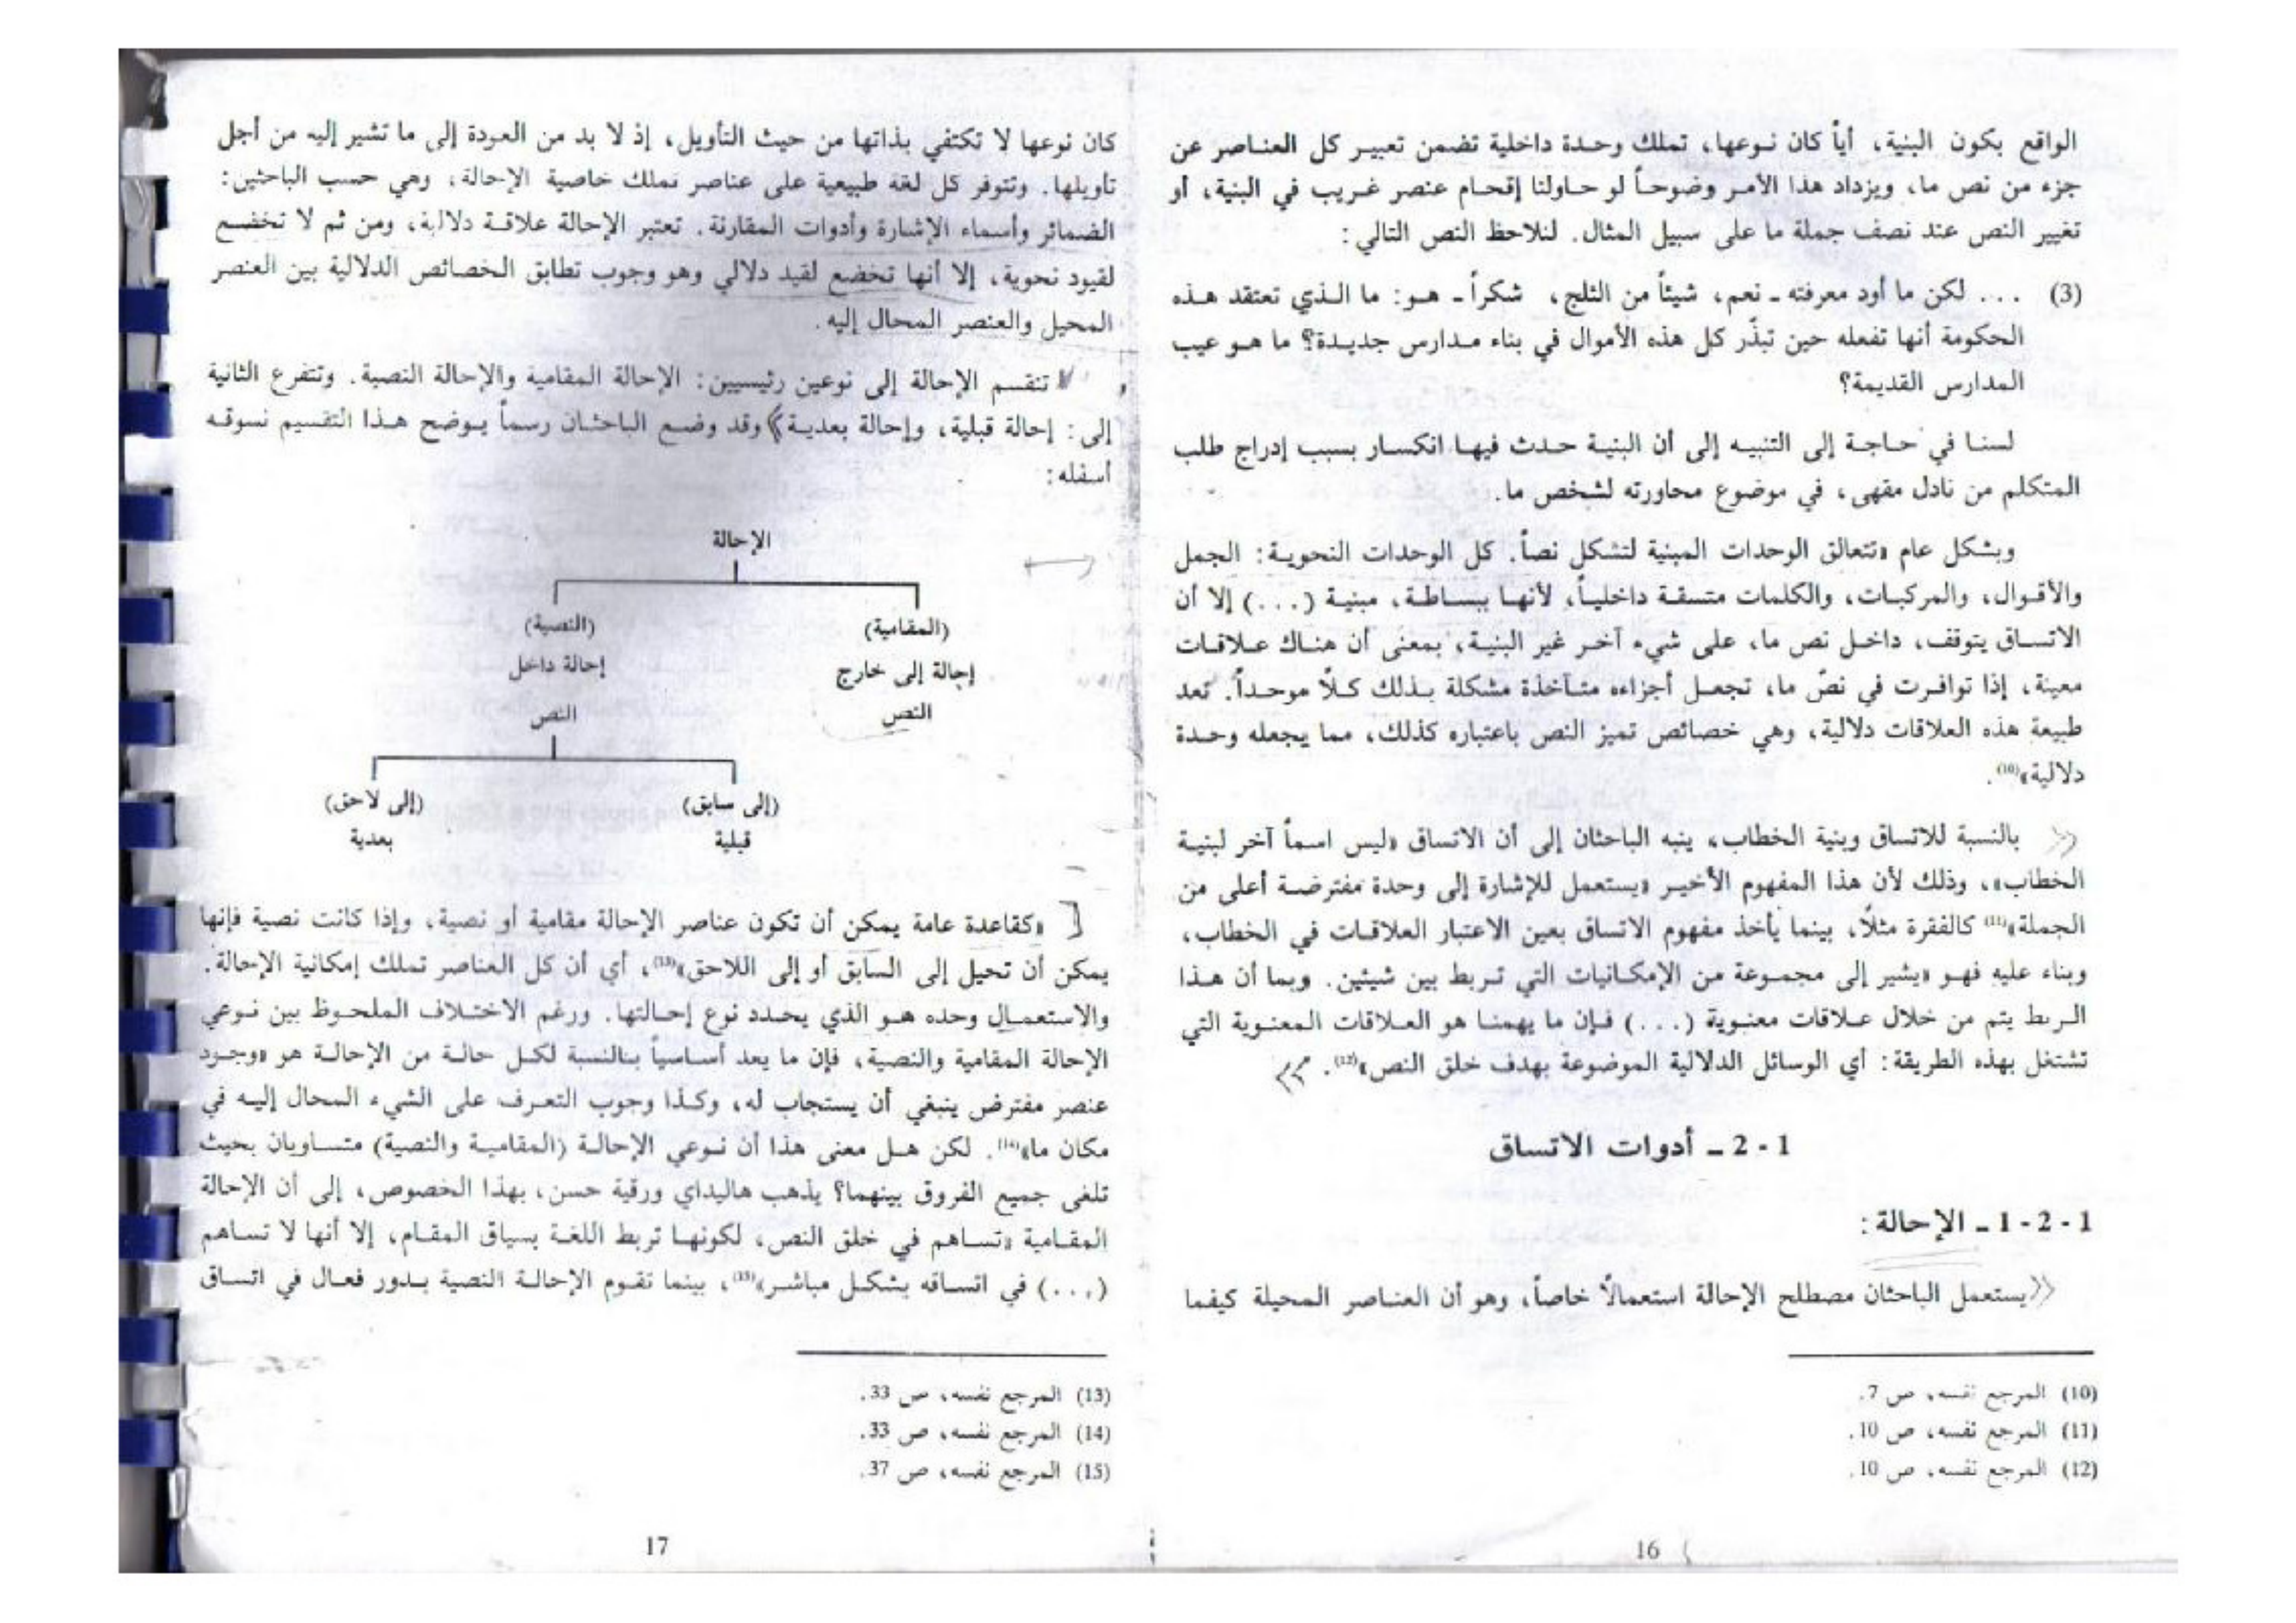 الواقع بكون البنية، أياً كان نوعها، تملك وحدة داخلية تضمن تعبير كل العناصر عن
جزء من نص ما، ويزداد هذا الأمر وضوحاً لو حاولنا إقحام عنصر غريب في البنية، أو
تغيير النص عند نصف جملة ما على سبيل المثال. لنلاحظ النص التالي:
(3) ... لكن ما أود معرفته ـ نعم، شيئاً من الثلج، شكراً ـ هو: ما الذي تعتقد هذه
الحكومة أنها تفعله حين تبذّر كل هذه الأموال في بناء مدارس جديدة؟ ما هو عيب
المدارس القديمة؟
لسنا في حاجة إلى التنبيه إلى أن البنية حدث فيها انكسار بسبب إدراج طلب
المتكلم من نادل مقهى، في موضوع محاورته لشخص ما.
وبشكل عام «تتعالق الوحدات المبنية لتشكل نصاً. كل الوحدات النحوية: الجمل
والأقوال، والمركبات، والكلمات متسقة داخلياً، لأنها ببساطة، مبنية (...) إلا أن
الاتساق يتوقف، داخل نص ما، على شيء آخر غير البنية، بمعنى أن هناك علاقات
معينة، إذا توافرت في نصّ ما، تجعل أجزاءه متآخذة مشكلة بذلك كلاً موحداً. تعد
طبيعة هذه العلاقات دلالية، وهي خصائص تميز النص باعتباره كذلك، مما يجعله وحدة
دلالية»(10).
بالنسبة للاتساق وبنية الخطاب، ينبه الباحثان إلى أن الاتساق «ليس اسماً آخر لبنية
الخطاب»، وذلك لأن هذا المفهوم الأخير «يستعمل للإشارة إلى وحدة مفترضة أعلى من
الجملة»(11) كالفقرة مثلاً، بينما يأخذ مفهوم الاتساق بعين الاعتبار العلاقات في الخطاب،
وبناء عليه فهو «يشير إلى مجموعة من الإمكانيات التي تربط بين شيئين. وبما أن هذا
الربط يتم من خلال علاقات معنوية (...) فإن ما يهمنا هو العلاقات المعنوية التي
تشتغل بهذه الطريقة: أي الوسائل الدلالية الموضوعة بهدف خلق النص»(12).
1 - 2 ـ أدوات الاتساق
1 - 2 - 1 ـ الإحالة:
يستعمل الباحثان مصطلح الإحالة استعمالاً خاصاً، وهو أن العناصر المحيلة كيفما
(10) المرجع نفسه، ص 7.
(11) المرجع نفسه، ص 10.
(12) المرجع نفسه، ص 10.
16
كان نوعها لا تكتفي بذاتها من حيث التأويل، إذ لا بد من العودة إلى ما تشير إليه من أجل
تأويلها. وتتوفر كل لغة طبيعية على عناصر تملك خاصية الإحالة، وهي حسب الباحثين:
الضمائر وأسماء الإشارة وأدوات المقارنة. تعتبر الإحالة علاقة دلالية، ومن ثم لا تخضع
لقيود نحوية، إلا أنها تخضع لقيد دلالي وهو وجوب تطابق الخصائص الدلالية بين العنصر
المحيل والعنصر المحال إليه.
تنقسم الإحالة إلى نوعين رئيسيين: الإحالة المقامية والإحالة النصية. وتتفرع الثانية
إلى: إحالة قبلية، وإحالة بعدية وقد وضع الباحثان رسماً يوضح هذا التقسيم نسوقه
أسفله:
الإحالة
(المقامية) (النصية)
إجالة إلى خارج إحالة داخل
النص النص
(إلى سابق) (إلى لاحق)
قبلية بعدية
«كقاعدة عامة يمكن أن تكون عناصر الإحالة مقامية أو نصية، وإذا كانت نصية فإنها
يمكن أن تحيل إلى السابق أو إلى اللاحق»(13)، أي أن كل العناصر تملك إمكانية الإحالة.
والاستعمال وحده هو الذي يحدد نوع إحالتها. ورغم الاختلاف الملحوظ بين نوعي
الإحالة المقامية والنصية، فإن ما يعد أساسياً بالنسبة لكل حالة من الإحالة هو «وجود
عنصر مفترض ينبغي أن يستجاب له، وكذا وجوب التعرف على الشيء المحال إليه في
مكان ما»(14). لكن هل معنى هذا أن نوعي الإحالة (المقامية والنصية) متساويان بحيث
تلغى جميع الفروق بينهما؟ يذهب هاليداي ورقية حسن، بهذا الخصوص، إلى أن الإحالة
المقامية «تساهم في خلق النص، لكونها تربط اللغة بسياق المقام، إلا أنها لا تساهم
(...) في اتساقه بشكل مباشر»(15)، بينما تقوم الإحالة النصية بدور فعال في اتساق
(13) المرجع نفسه، ص 33.
(14) المرجع نفسه، ص 33.
(15) المرجع نفسه، ص 37.
17